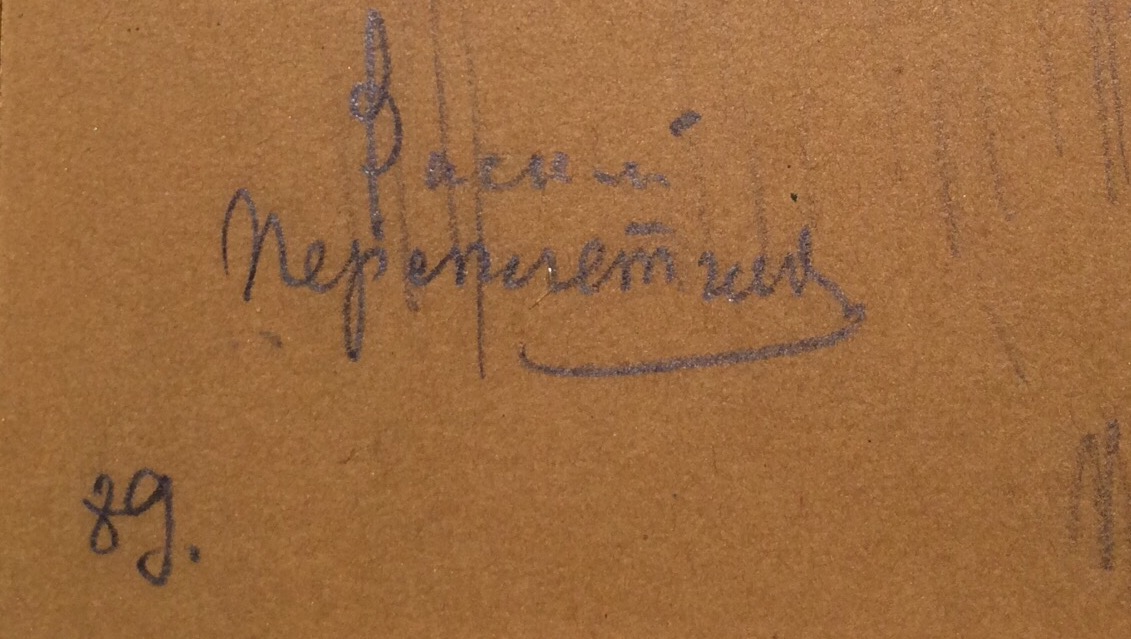 Василій
Переплетчиковъ
89.